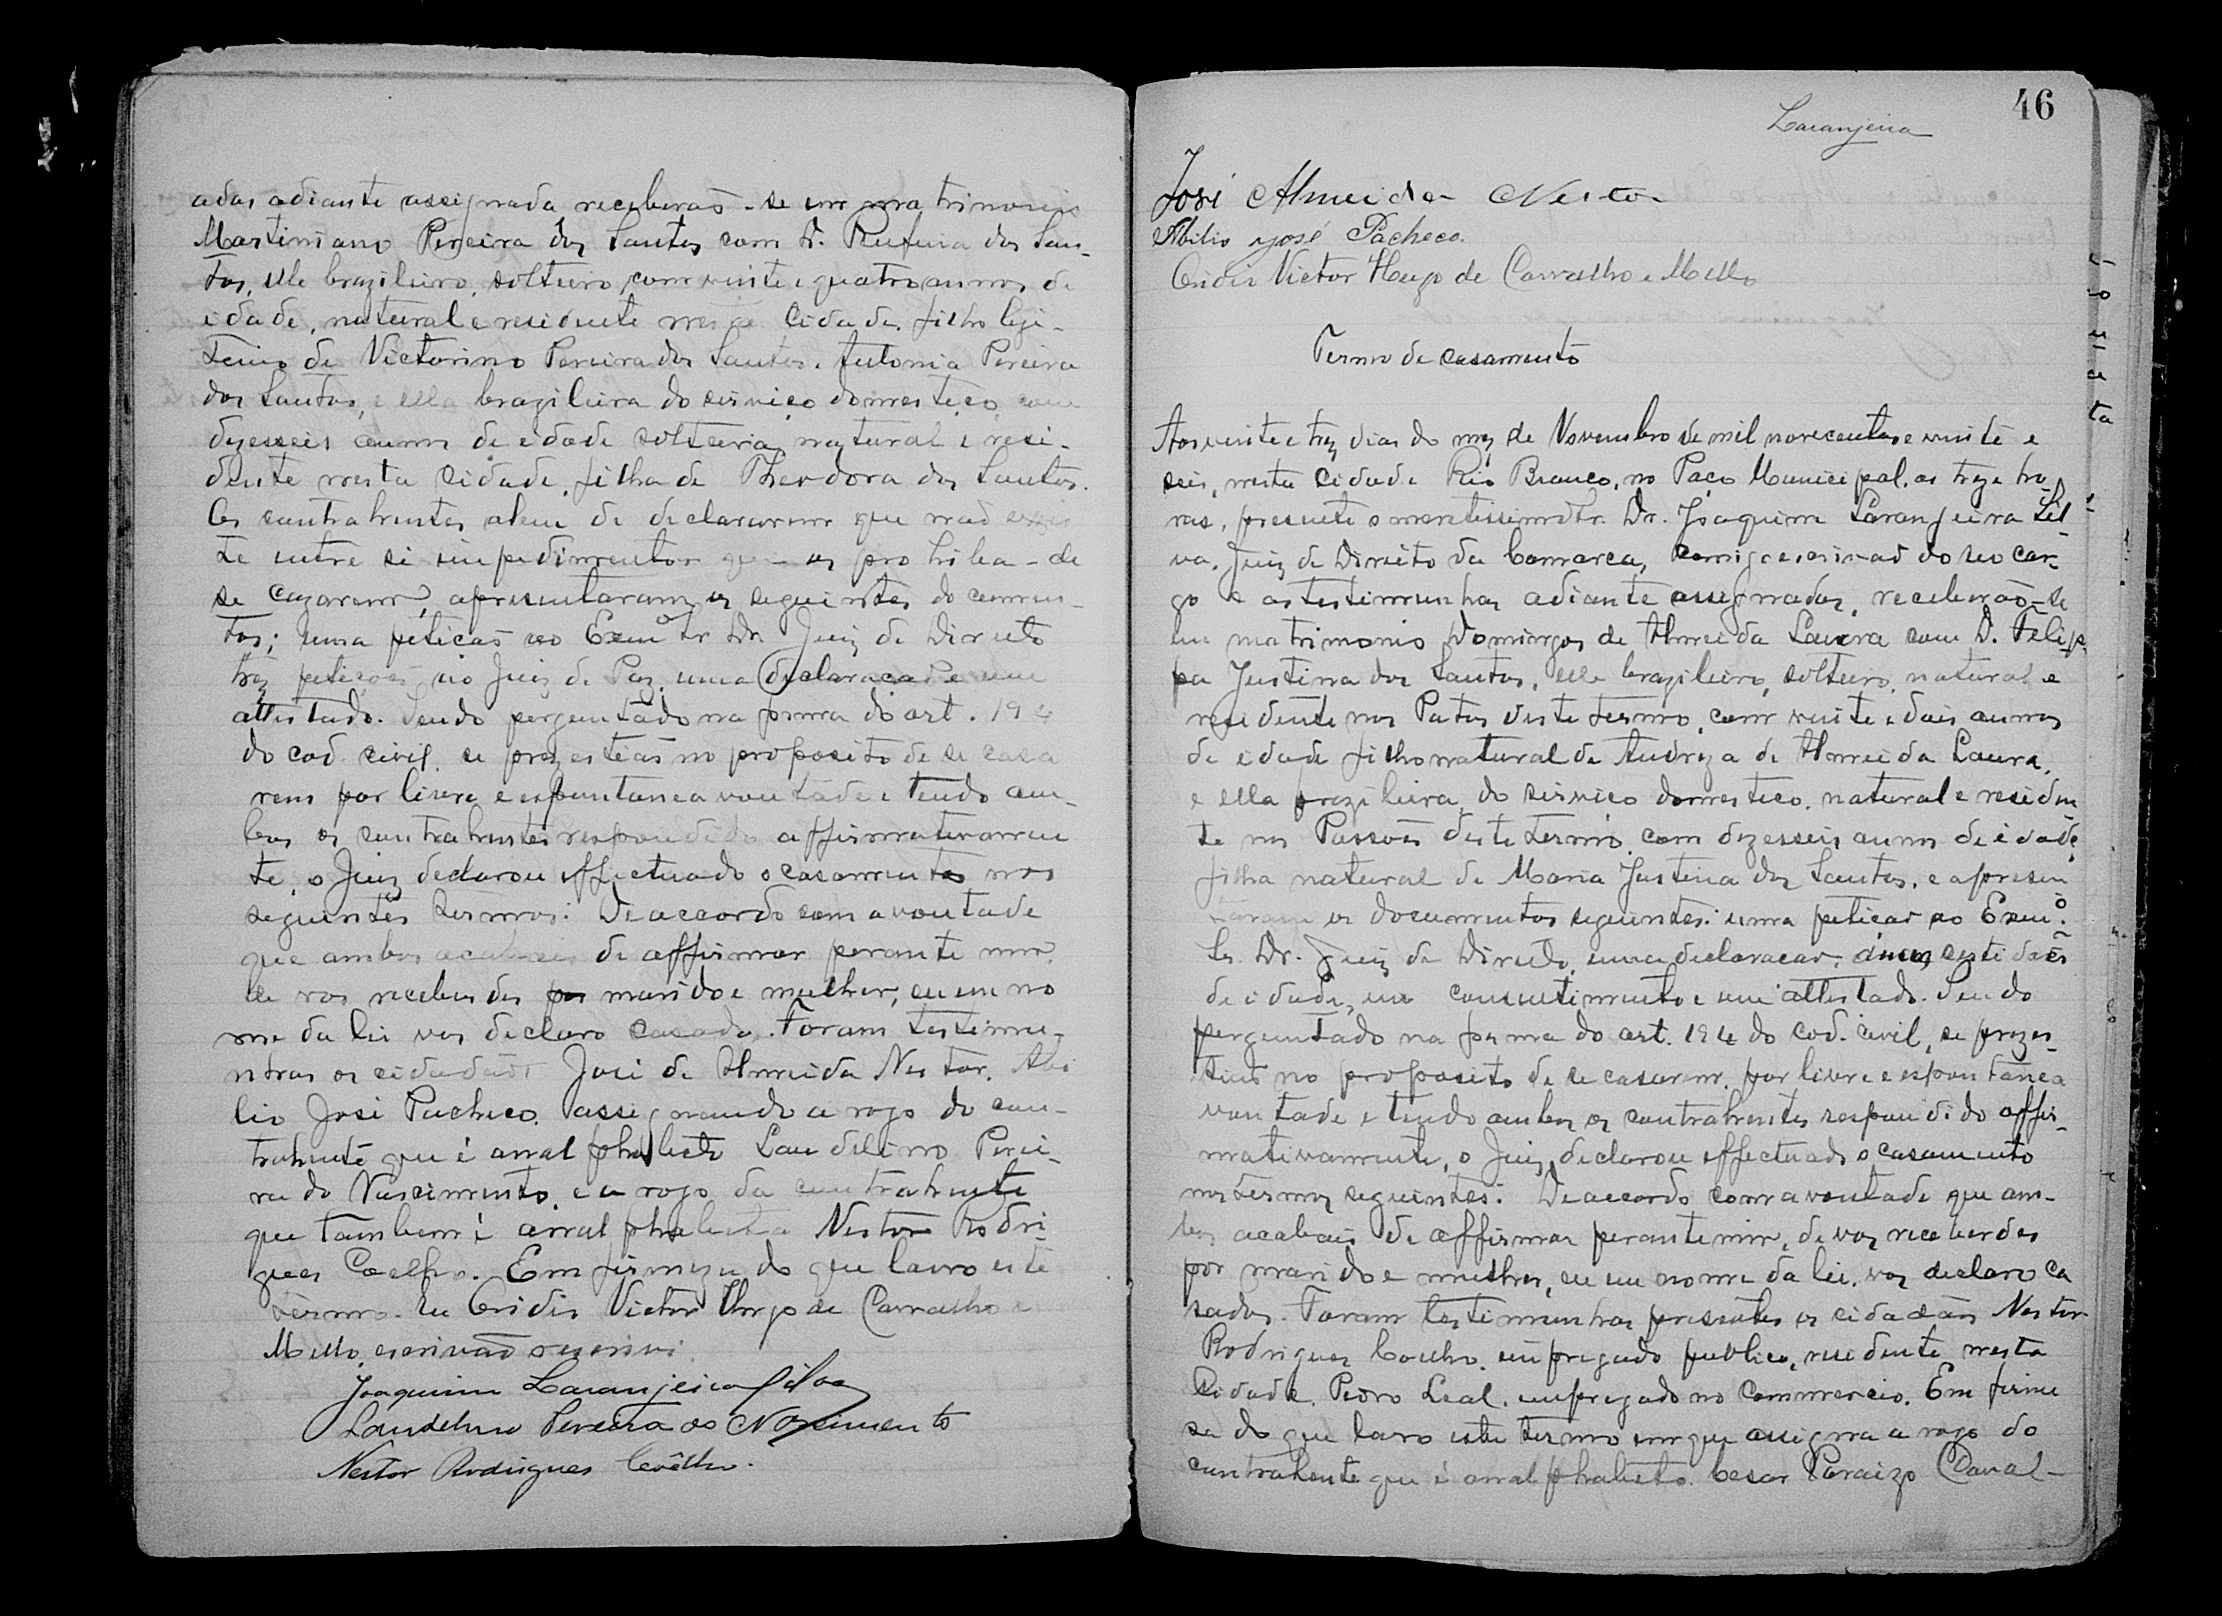 adas adiante assignada receberaõ-se em matrimonio
Martiniano Pereira dos Santos com D. Rufina dos San-
tos, elle brazileiro, solteiro, com vinte e quatro annos de
idade, natural e residente nesta Cidade, filho legi-
timo de Victorino Pereira dos Santos e Antonia Pereira
dos Santos, e ella brazileira do serviço domestico, com
dezesseis annos de idade solteira, natural e resi-
dente nesta Cidade, filha de Theodora dos Santos.
Os contrahentes alem de declararem que naõ exis
te entre si impedimentos que os prohiba-de
se cazarem, apresentaram os seguintes documen-
tos; uma peticaõ ao Exmº Sr Dr. Juiz de Direito
trez petições ao Juiz de Paz, uma declaração e um
attestado. Sendo perguntado na forma do art. 194
do cod civil, se prezesteás no proposito de se casa
rem por livre e espontanea vontade e tendo am-
bos os contrahentes respondido affirmativamen
te, o Juiz declarou effectuado o casamento nos
seguintes termos: De accordo com a vontade
que ambos acabaes de affirmar perante mim,
de vos receberdes por marido e mulher, eu em no
me da lei vos declaro casados. Foram testemu-
nhas os cidadãos José de Almeida Nestor, Abi
lio José Pacheco, assignando a rogo do con-
trahente que é analphabeto Laudelino Perei-
ra do Nascimento, e a rogo da contrahente
que tambem é analphabeta Nestor Rodri-
gues Coelho. Em firmeza do que lavro este
termo. Eu Cridis Victor Hugo de Carvalho e
Mello, escrivaõ escrivi.
Joaquim Laranjeira Silva
Laudelino Pereira do Nascimento
Nestor Rodrigues Coêlho.
46
Laranjeira
José Almeida Nestor
Abilio José Pacheco.
Cridis Victor Hugo de Carvalho e Mello
Termo de casamento
Aos vinte e trez dias do mez de Novembro de mil novecentos e vinte e
seis, nesta Cidade Rio Branco, no Paço Municipal, as treze ho
ras, presente o meretissimo Sr. Dr. Joaquim Laranjeira Sil-
va, Juiz de Direito da Comarca, comigo escrivaõ do seo car-
go e as testimunhas adiante assegnadas, receberaõ-se
em matrimonio Domingos de Almeida Laura com D. Felip-
pa Justina dos Santos, elle brazileiro, solteiro, natural e
residente nos Patos deste termo, com vinte e dois annos
de idade filho natural de Andreza de Almeida Laura,
e ella brazileira, do serviço domestico, natural e residen
te nos Passoes deste termo, com dezesseis annos de idade,
filha natural de Maria Justina dos Santos, e apresen
taram os documentos seguintes: uma peticaõ ao Exmº.
Sr. Dr. Juiz de Direito, uma declaracaõ, duas certidoẽs
de idade, um consentimento e um attestado. Sendo
perguntado na forma do art. 194 do cod. civil, se prezes-
tiaõ no proposito de se casarem, por livre e espontanea
vontade e tendo ambos os contrahentes respondido affir-
mativamente, o Juiz declarou effectuado o casamento
nos termos seguintes: De accordo com a vontade que am-
bos acabais de affirmar perante mim, de vos receberdes
por marido e mulher, eu em nome da lei, vos declaro ca
sados. Foram testimunhas presentes os cidadãos Nestor
Rodrigues Coelho, empregado publico, residente nesta
Cidade, Pedro Leal, empregado no Commercio. Em firme
sa do que lavro este termo em que assigna a rogo do
contrahente que é analphabeto. Cesar Paraizo Caval-